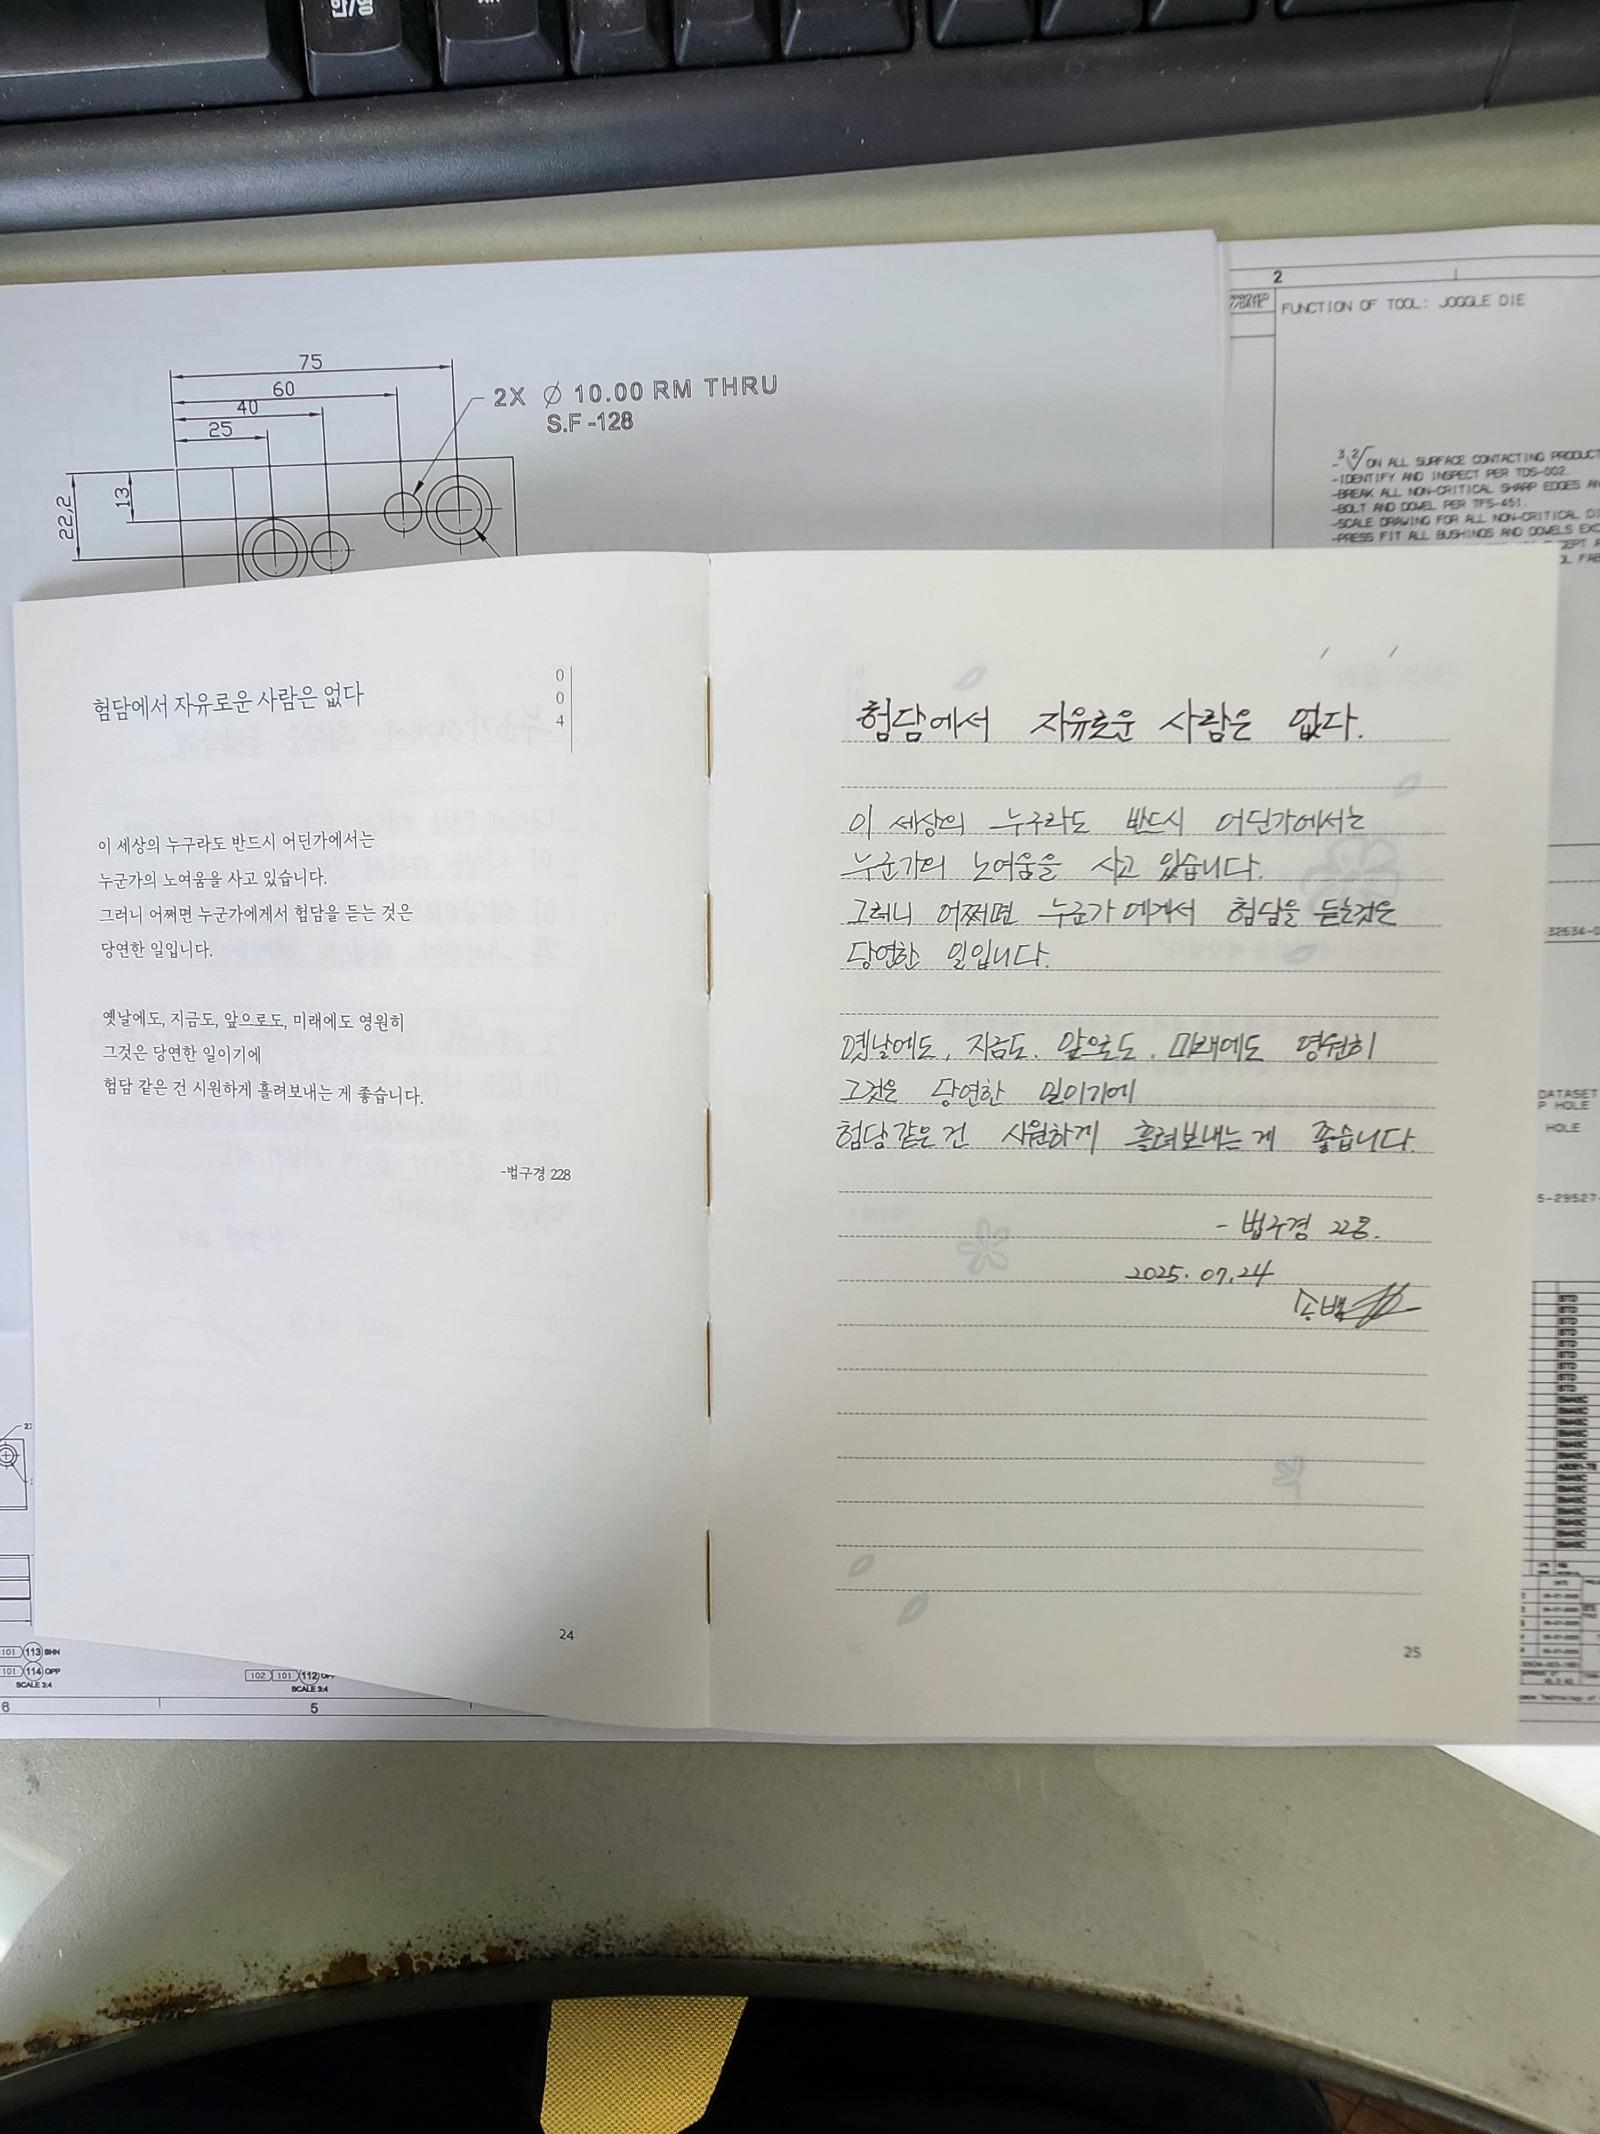 한/영
75
60
40
25
2X Ø 10.00 RM THRU
S.F-128
13
22,2
2
FUNCTION OF TOOL: JOGGLE DIE
3.2 ON ALL SURFACE CONTACTING PRODUCT
-IDENTIFY AND INSPECT PER TDS-002.
-BREAK ALL NON-CRITICAL SHARP EDGES AN
-BOLT AND DOWEL PER TFS-451.
-SCALE DRAWING FOR ALL NON-CRITICAL DI
-PRESS FIT ALL BUSHINGS AND DOWELS EXC
험담에서 자유로운 사람은 없다
0
0
4
이 세상의 누구라도 반드시 어딘가에서는
누군가의 노여움을 사고 있습니다.
그러니 어쩌면 누군가에게서 험담을 듣는 것은
당연한 일입니다.
옛날에도, 지금도, 앞으로도, 미래에도 영원히
그것은 당연한 일이기에
험담 같은 건 시원하게 흘려보내는 게 좋습니다.
-법구경 228
24
험담에서 자유로운 사람은 없다.
이 세상의 누구라도 반드시 어딘가에서는
누군가의 노여움을 사고 있습니다.
그러니 어쩌면 누군가에게서 험담을 듣는것은
당연한 일입니다.
옛날에도, 지금도, 앞으로도, 미래에도 영원히
그것은 당연한 일이기에
험담 같은 건 시원하게 흘려보내는 게 좋습니다.
- 법구경 228.
2025. 07. 24
25
32634-0
DATASET
P HOLE
HOLE
5-29527-
101 113 SHN
101 114 OPP
SCALE 3:4
102 101 112
SCALE 3:4
6
5